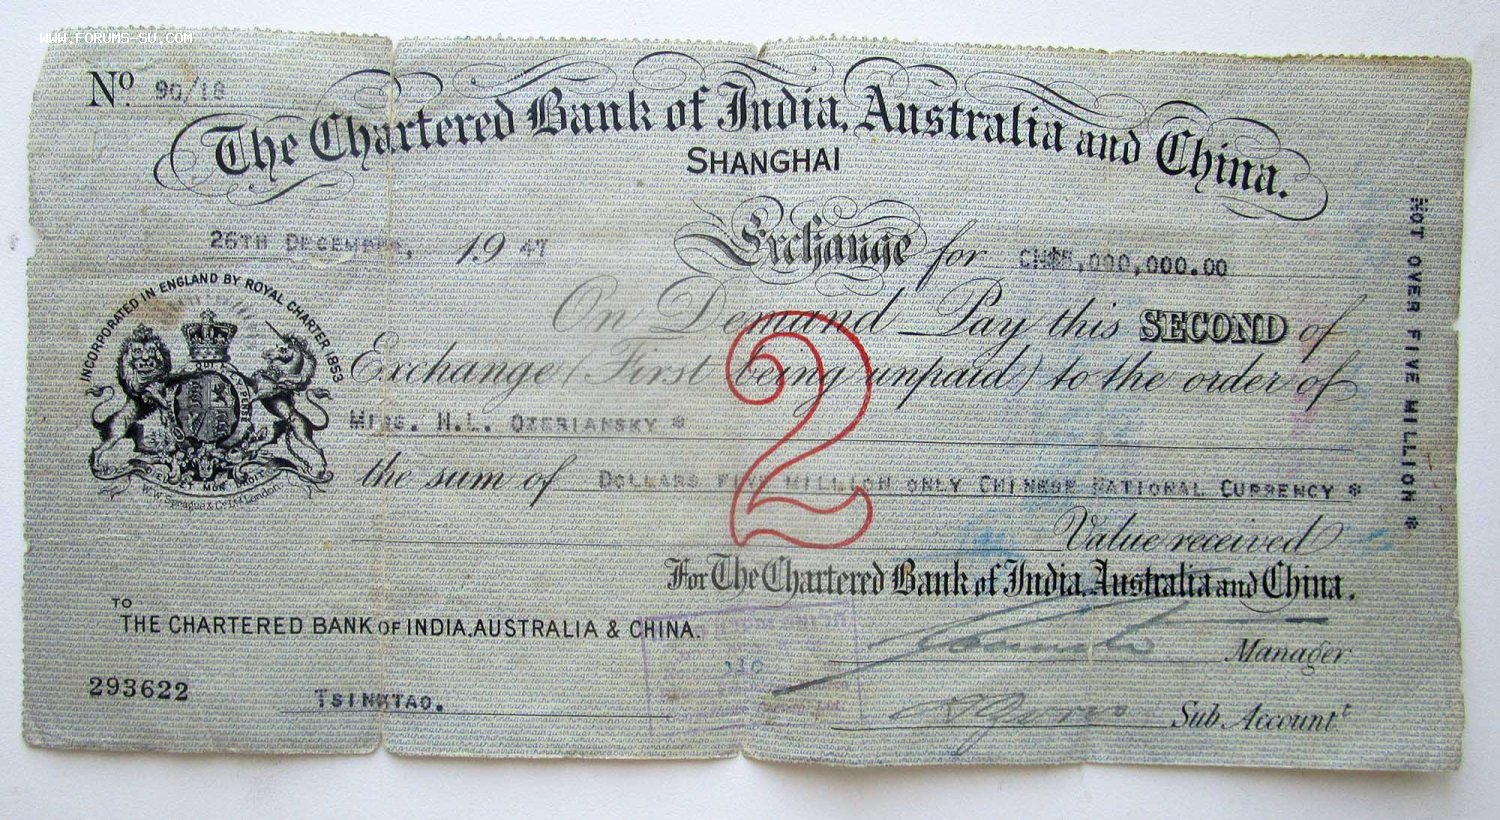 WWW.FORUMS-SU.COM
No. 90/18
The Chartered Bank of India, Australia and China.
SHANGHAI
26TH DECEMBER, 1947
Exchange for CN$5,000,000.00
On Demand Pay this SECOND of
Exchange (First being unpaid) to the order of
MESSRS. H.L. OZERIANSKY *
the sum of DOLLARS FIVE MILLION ONLY CHINESE NATIONAL CURRENCY *
2
Value received
For The Chartered Bank of India, Australia and China.
TO
THE CHARTERED BANK OF INDIA, AUSTRALIA & CHINA.
Manager
293622
TSINGTAO.
Sub. Account^t
NOT OVER FIVE MILLION *
INCORPORATED IN ENGLAND BY ROYAL CHARTER 1853
DIEU ET MON DROIT
W.W. Sprague & Co. Ltd. London